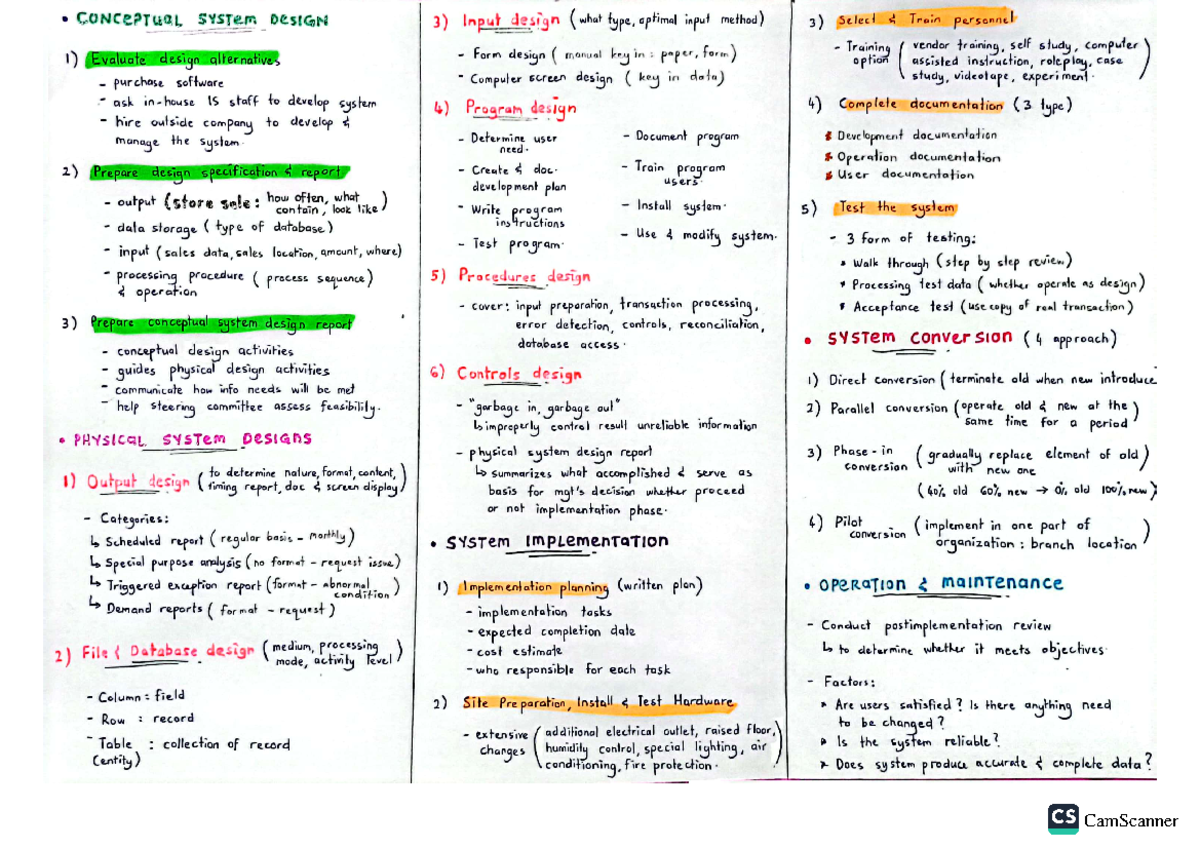 • CONCEPTUAL SYSTEM DESIGN
1) Evaluate design alternatives
- purchase software
- ask in-house IS staff to develop system
- hire outside company to develop &
manage the system.
2) Prepare design specification & report
- output (store sale: how often, what
contain, look like)
- data storage (type of database)
- input (sales data, sales location, amount, where)
- processing procedure (process sequence)
& operation
3) Prepare conceptual system design report
- conceptual design activities
- guides physical design activities
- communicate how info needs will be met
- help steering committee assess feasibility.
• PHYSICAL SYSTEM DESIGNS
1) Output design (to determine nature, format, content,
timing report, doc & screen display)
- Categories:
↳ Scheduled report (regular basis - monthly)
↳ Special purpose analysis (no format - request issue)
↳ Triggered exception report (format - abnormal
condition)
↳ Demand reports (format - request)
2) File & Database design (medium, processing
mode, activity level)
- Column : field
- Row : record
- Table : collection of record
(entity)
3) Input design (what type, optimal input method)
- Form design (manual key in : paper, form)
- Computer screen design (key in data)
4) Program design
- Determine user
need.
- Create & doc.
development plan
- Write program
instructions
- Test program.
- Document program
- Train program
users.
- Install system.
- Use & modify system.
5) Procedures design
- cover: input preparation, transaction processing,
error detection, controls, reconciliation,
database access.
6) Controls design
- "garbage in, garbage out"
↳ improperly control result unreliable information
- physical system design report
↳ summarizes what accomplished & serve as
basis for mgt's decision whether proceed
or not implementation phase.
• SYSTEM IMPLEMENTATION
1) Implementation planning (written plan)
- implementation tasks
- expected completion date
- cost estimate
- who responsible for each task
2) Site Preparation, Install & Test Hardware
- extensive changes (additional electrical outlet, raised floor,
humidity control, special lighting, air
conditioning, fire protection.)
3) Select & Train personnel
- Training option (vendor training, self study, computer
assisted instruction, roleplay, case
study, videotape, experiment.)
4) Complete documentation (3 type)
* Development documentation
* Operation documentation
* User documentation
5) Test the system
- 3 form of testing:
* Walk through (step by step review)
* Processing test data (whether operate as design)
* Acceptance test (use copy of real transaction)
• SYSTEM CONVERSION (4 approach)
1) Direct conversion (terminate old when new introduce
2) Parallel conversion (operate old & new at the
same time for a period)
3) Phase-in conversion (gradually replace element of old
with new one)
(40% old 60% new → 0% old 100% new)
4) Pilot conversion (implement in one part of
organization : branch location)
• OPERATION & MAINTENANCE
- Conduct postimplementation review
↳ to determine whether it meets objectives.
- Factors:
* Are users satisfied? Is there anything need
to be changed?
* Is the system reliable?
* Does system produce accurate & complete data?
CS CamScanner